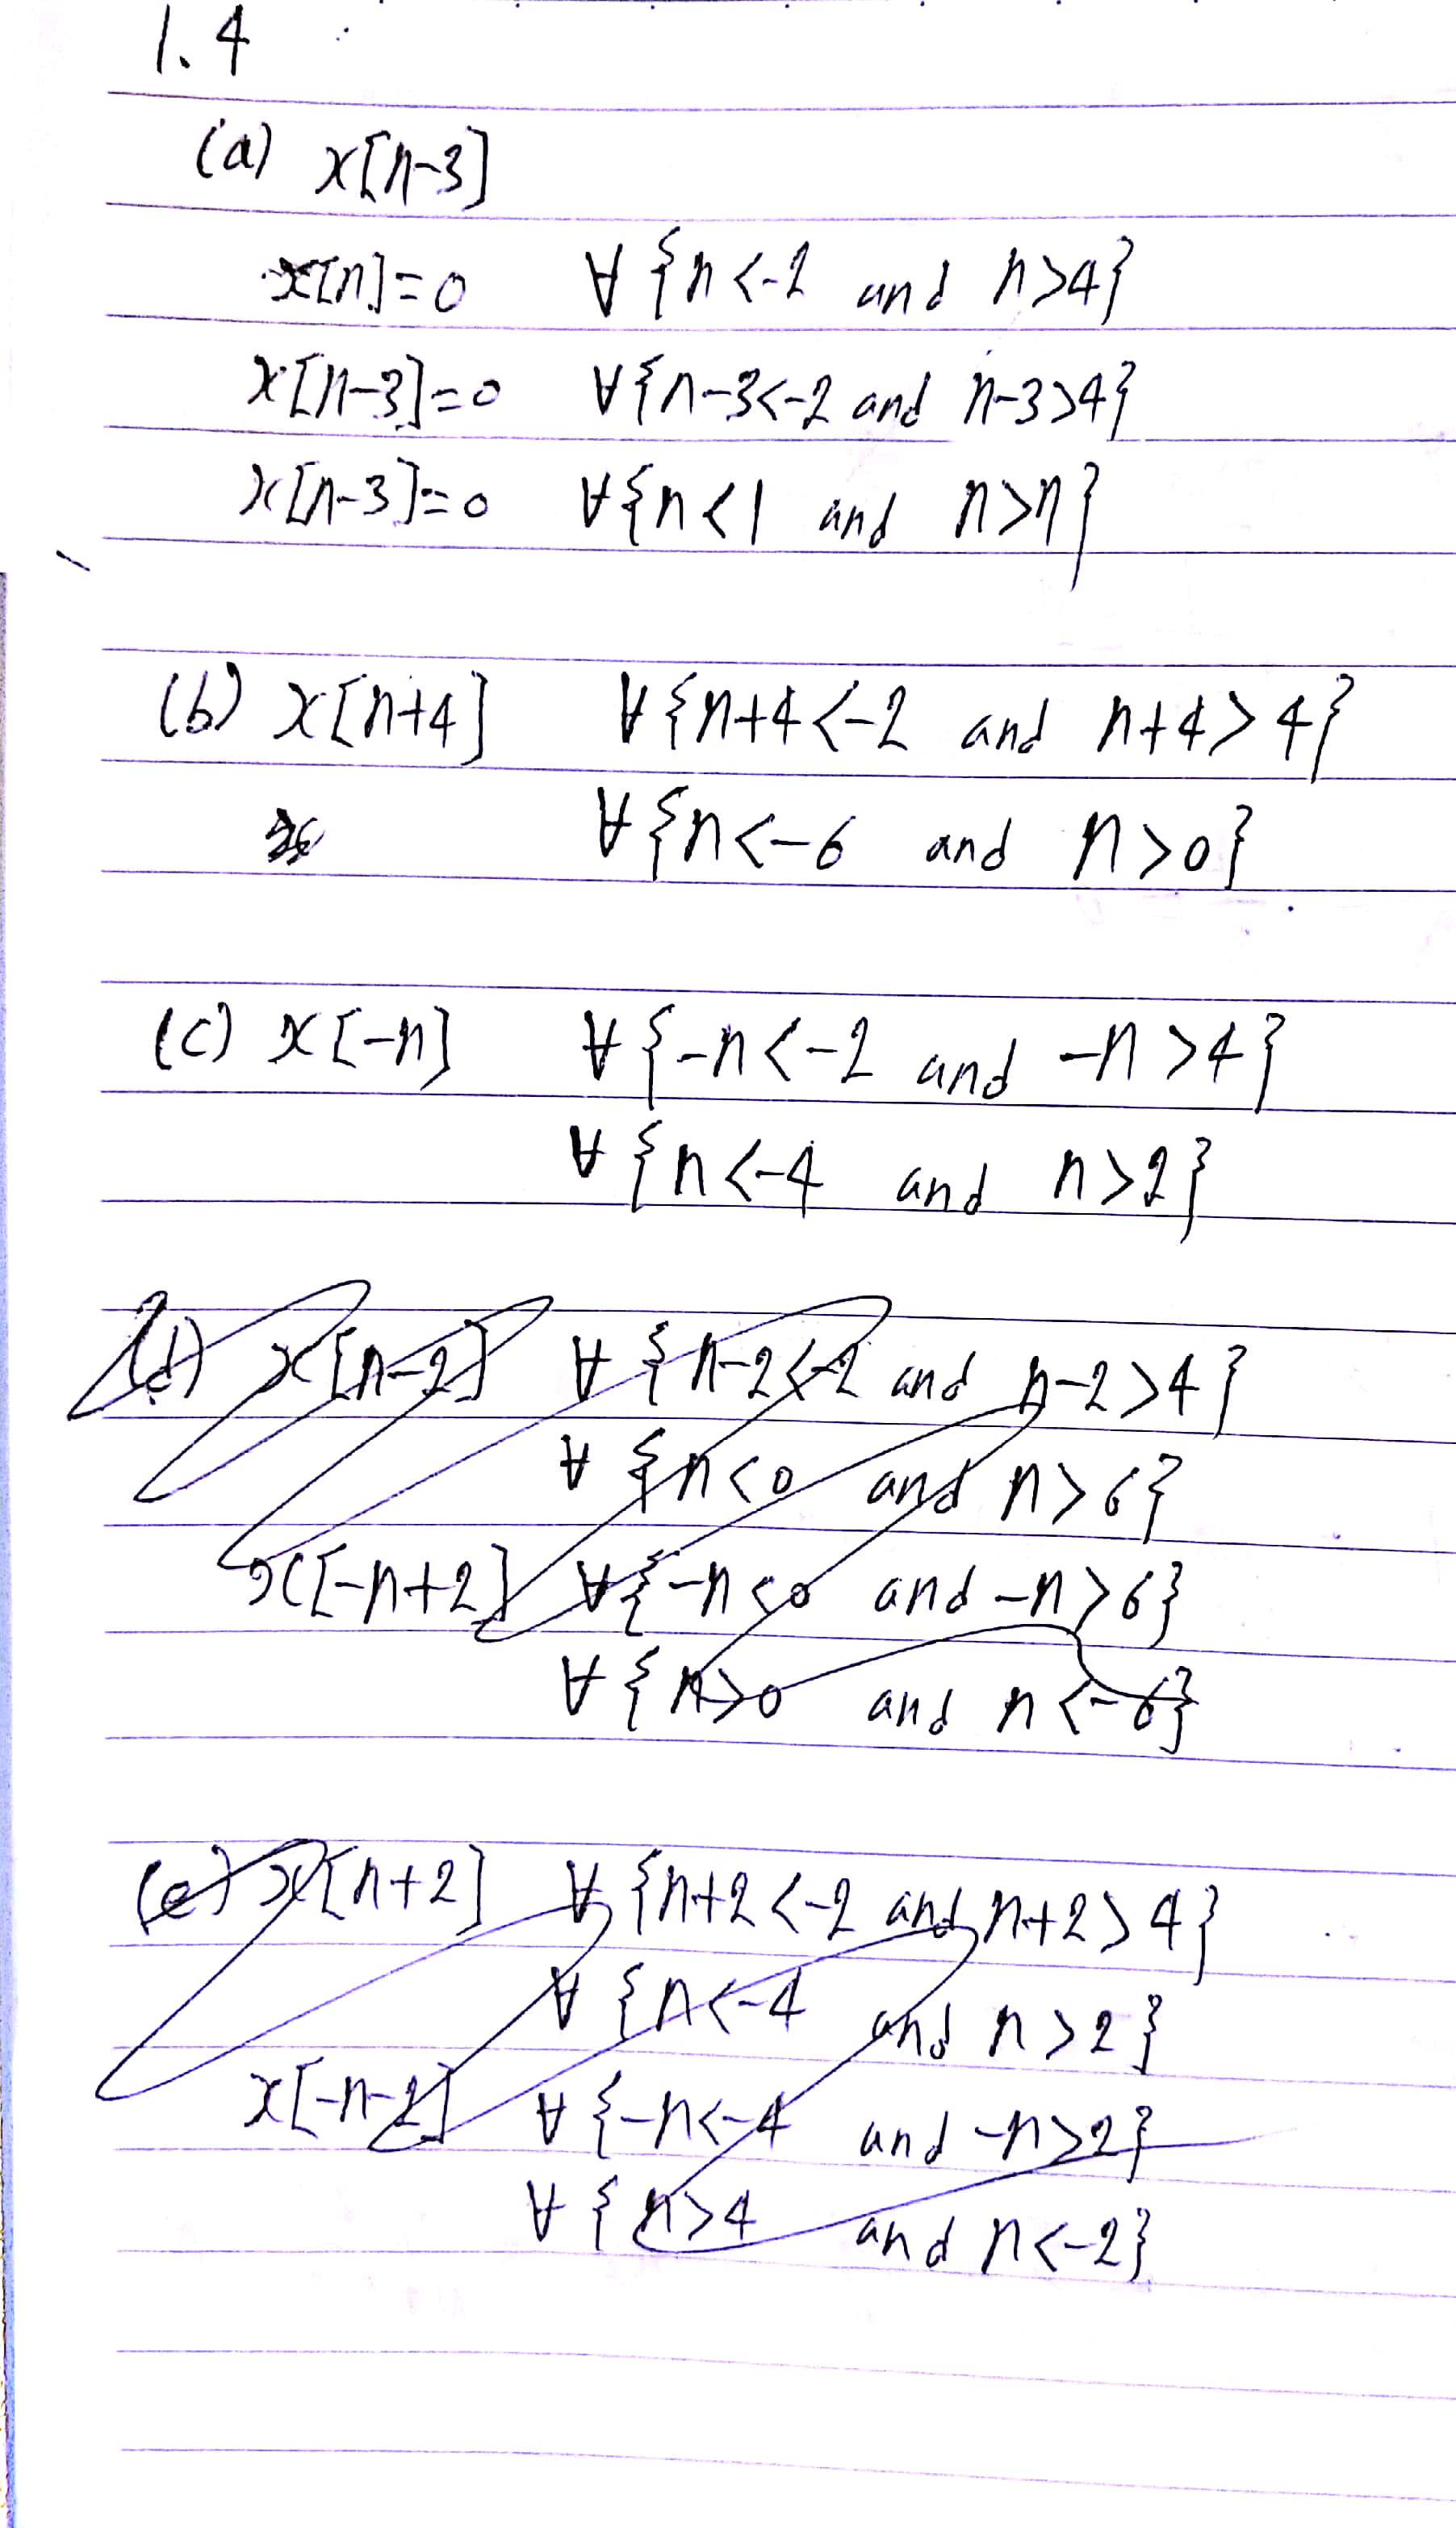 1.4
(a) x[n-3]
x[n]=0 ∀{n<-2 and n>4}
x[n-3]=0 ∀{n-3<-2 and n-3>4}
x[n-3]=0 ∀{n<1 and n>7}
(b) x[n+4] ∀{n+4<-2 and n+4>4}
∀{n<-6 and n>0}
(c) x[-n] ∀{-n<-2 and -n>4}
∀{n<-4 and n>2}
(d) x[n-2] ∀{n-2<-2 and n-2>4}
∀{n<0 and n>6}
x[-n+2] ∀{-n<0 and -n>6}
∀{n>0 and n<-6}
(e) x[n+2] ∀{n+2<-2 and n+2>4}
∀{n<-4 and n>2}
x[-n-2] ∀{-n<-4 and -n>2}
∀{n>4 and n<-2}